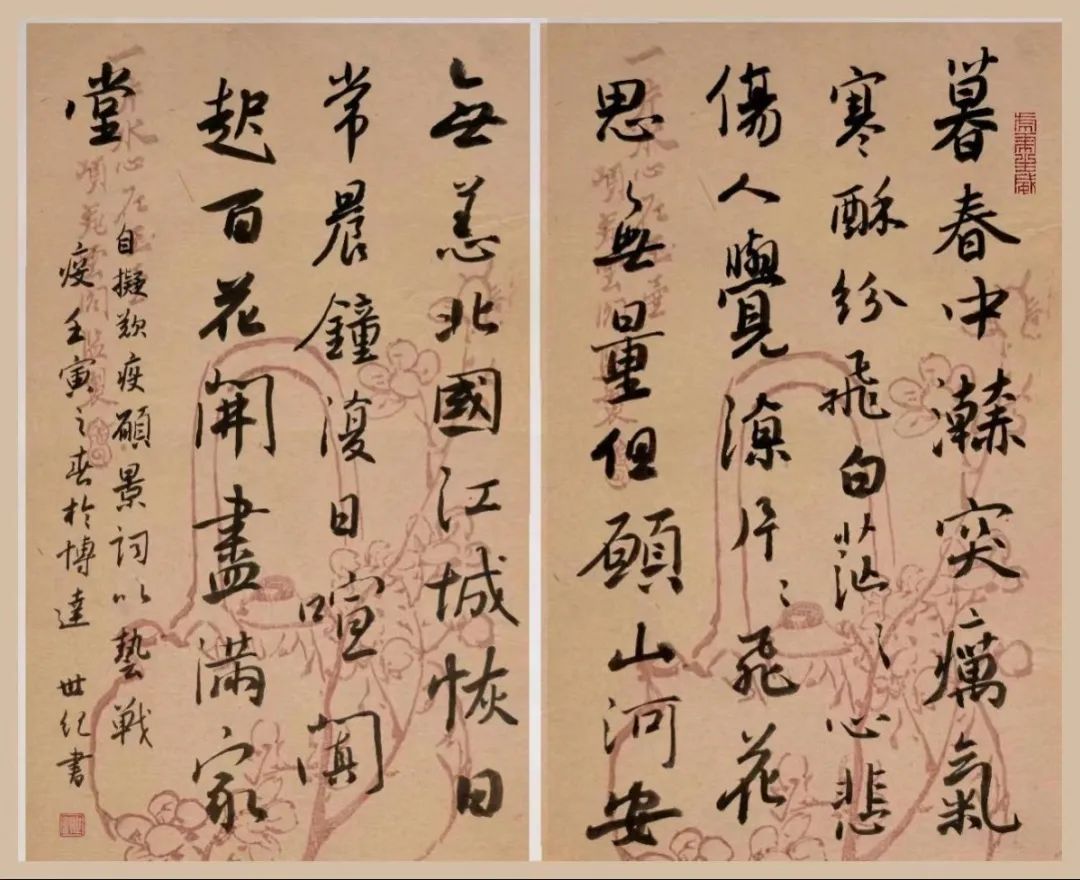 暮春中瀚突癘氣
寒酥紛飛白茫〻心悲
傷人覺凜片〻飛花
思無量但願山河安
無恙北國江城恢日
常晨鐘復日喧闐
起百花開盡滿家
堂
自擬歎疫願景詞以藝戰
疫壬寅之春於博達 世紀書